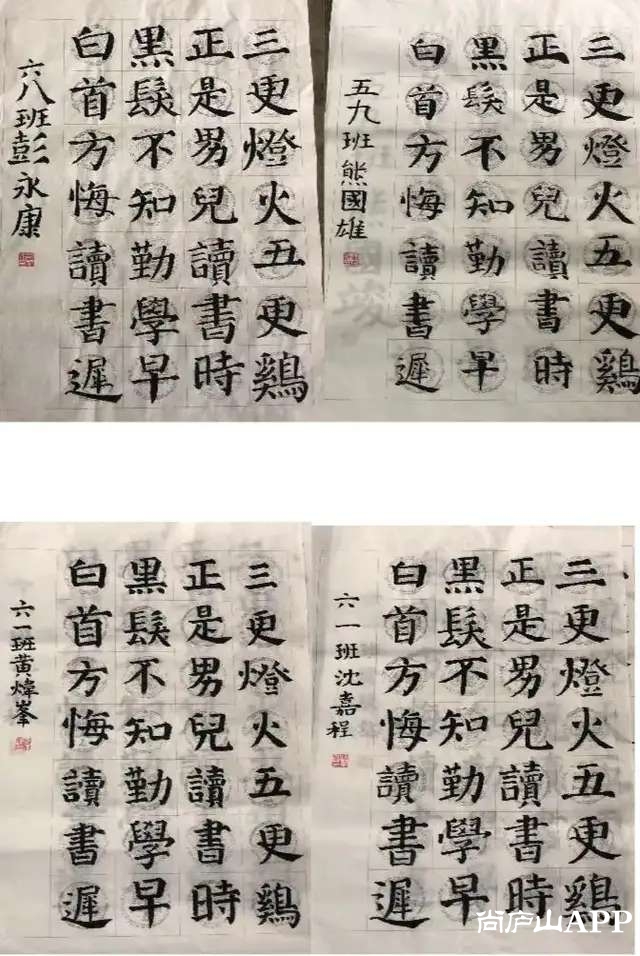 三更燈火五更鷄
正是男兒讀書時
黑髮不知勤學早
白首方悔讀書遲
六八班彭永康
三更燈火五更鷄
正是男兒讀書時
黑髮不知勤學早
白首方悔讀書遲
五九班熊國雄
三更燈火五更鷄
正是男兒讀書時
黑髮不知勤學早
白首方悔讀書遲
六一班黄煒峯
三更燈火五更鷄
正是男兒讀書時
黑髮不知勤學早
白首方悔讀書遲
六一班沈嘉程
尚庐山APP